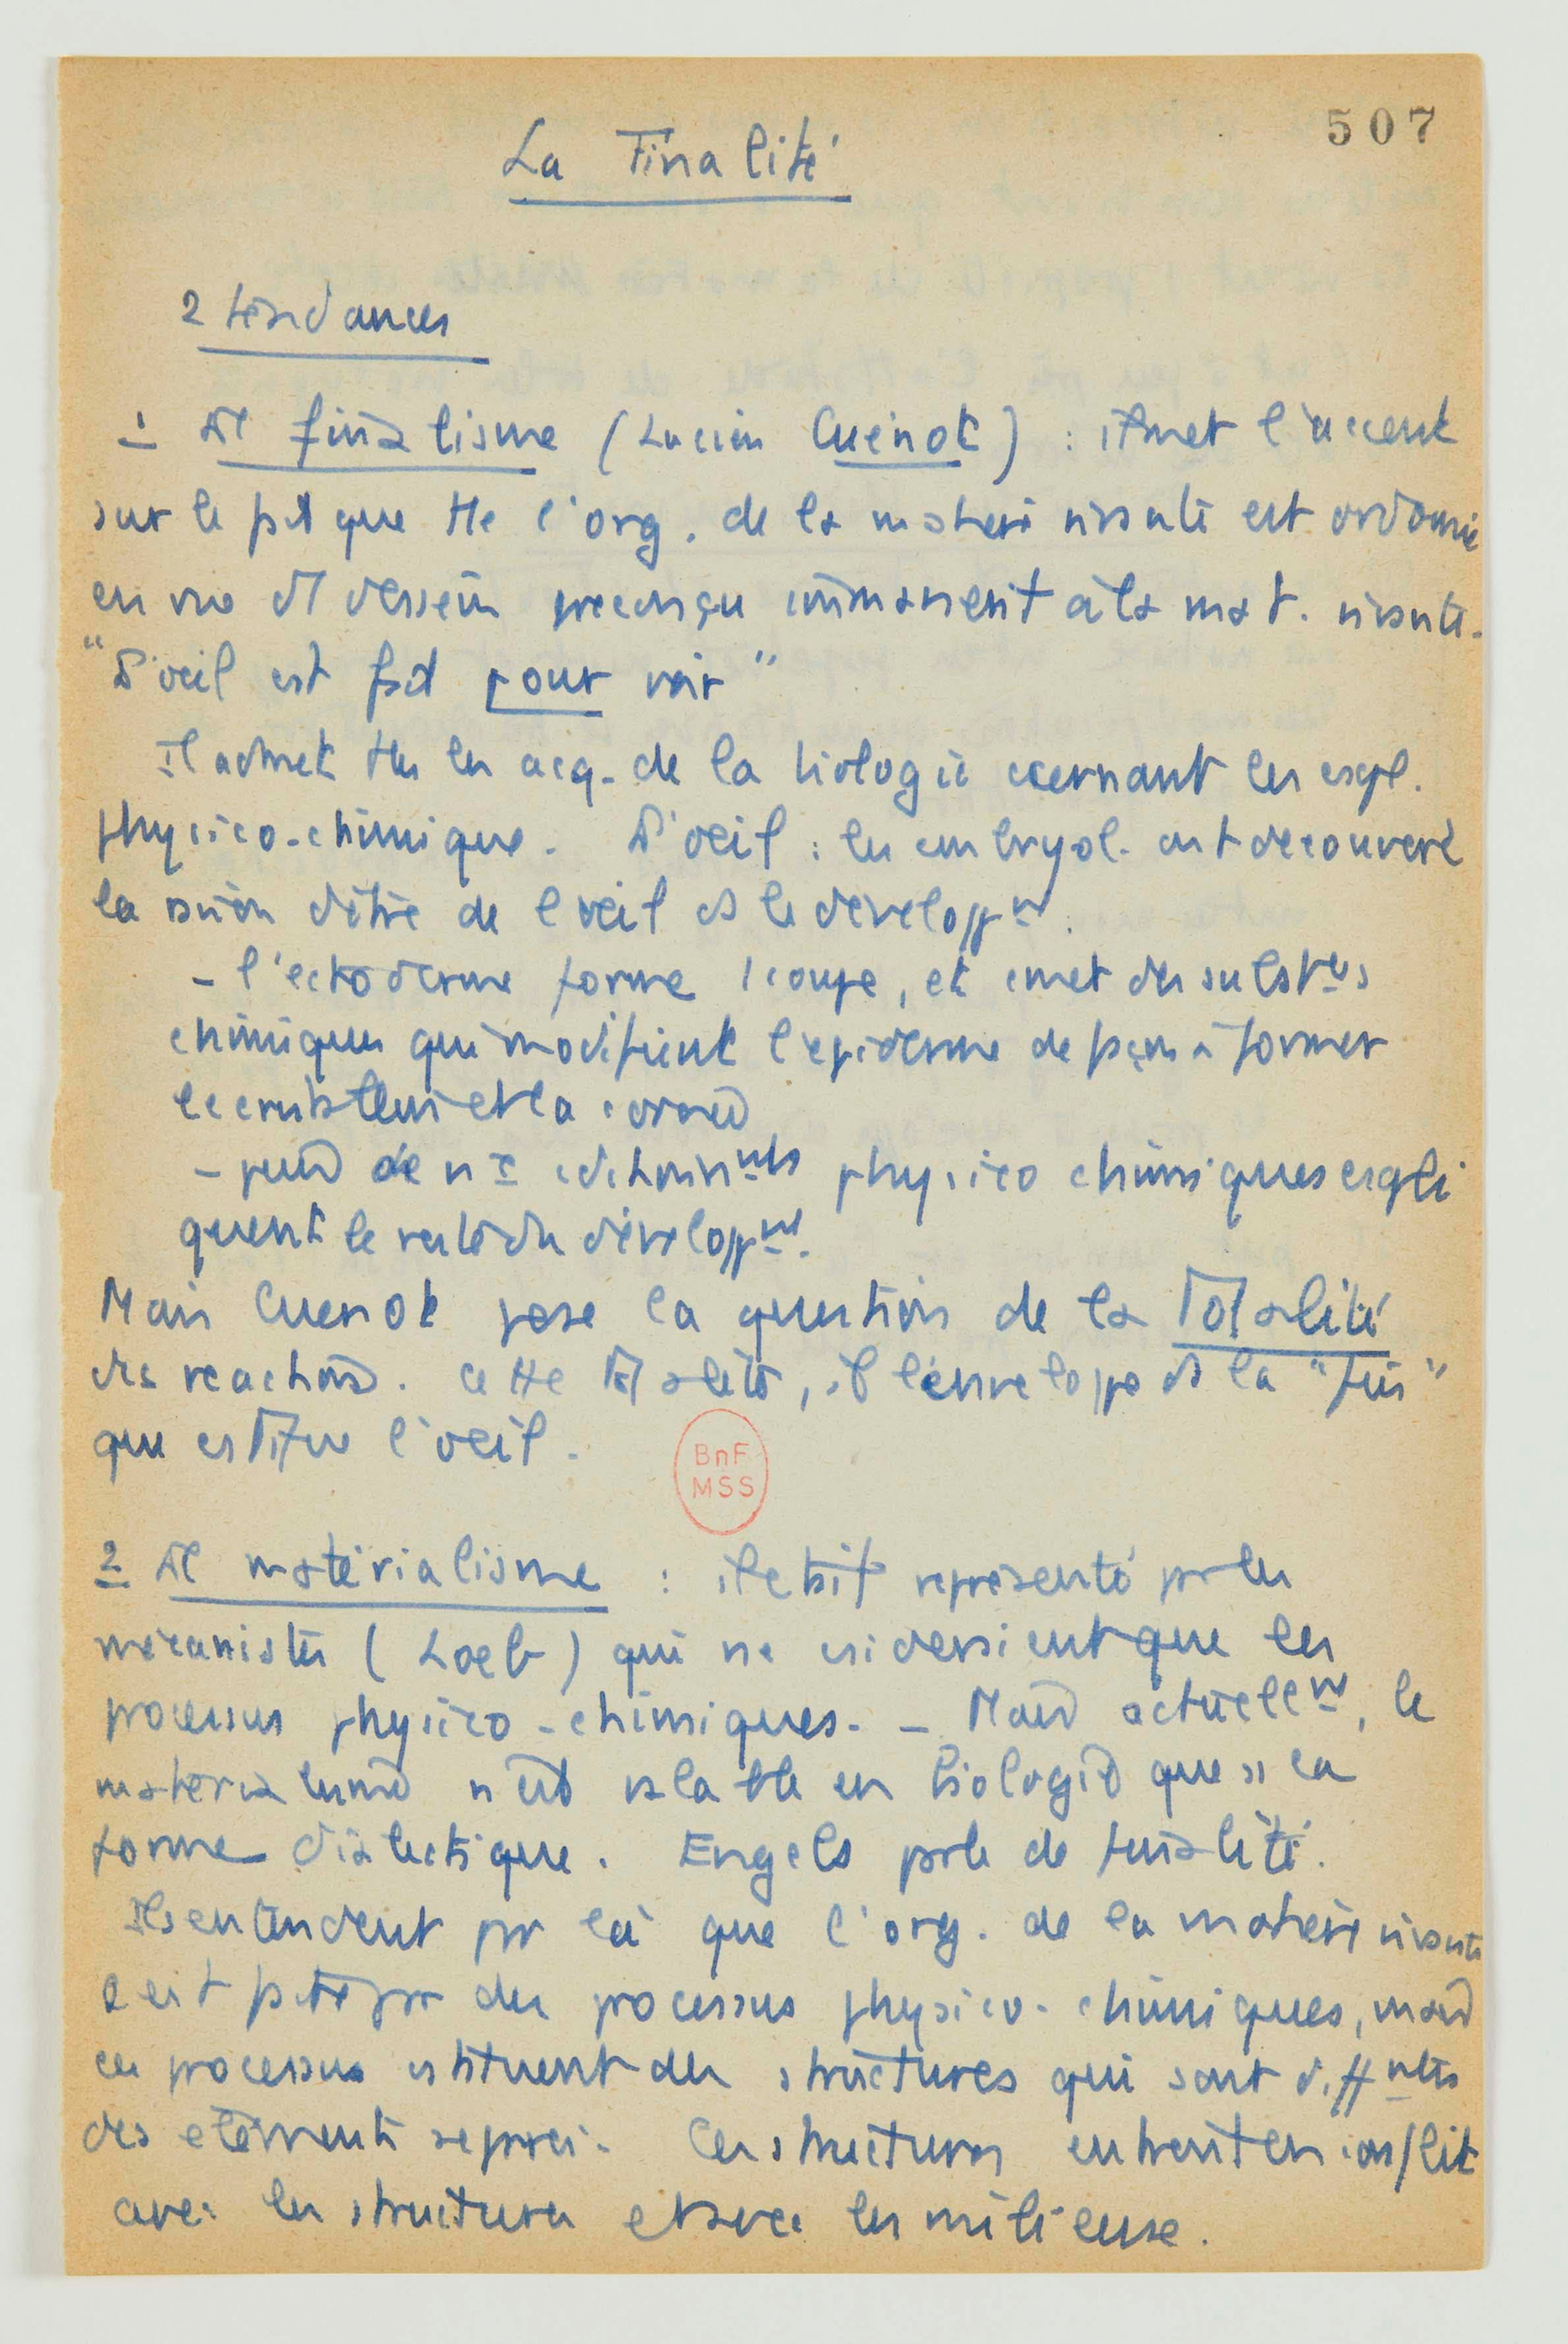 507
La Finalité
2 tendances
1 Le finalisme (Lucien Cuénot) : il met l'accent
sur le fait que tte l'org. de la matière vivante est ordonnée
en vue d'1 dessein préconçu immanent à la mat. vivante.
"L'oeil est fait pour voir"
Il admet ttes les acq. de la biologie ccernant les expl.
physico-chimique. L'oeil : les embryol. ont découvert
la raison d'être de l'oeil ds le développmt.
- l'ectoderme forme 1 coupe, et émet des substces
chimiques qui modifient l'épiderme de façon à former
le cristallin et la cornée
- quand de nx cditionnmts physico chimiques expli
quent le reste du développmt.
Mais Cuenot pose la question de la Totalité
des réactions. Cette totalité, il l'enveloppe ds la "fin"
que cstitue l'oeil.
BnF
MSS
2 Le matérialisme : il était représenté par les
mécanistes (Loeb) qui ne csidéraient que les
processus physico-chimiques. - Mais actuellmt, le
matérialisme n'est valable en biologie que ss la
forme dialectique. Engels parle de finalité.
Ils entendent par là que l'org. de la matière vivante
est faite par des processus physico-chimiques, mais
ces processus cstituent des structures qui sont diffntes
des éléments séparés. Ces structures entrent en conflit
avec les structures et avec les milieux.